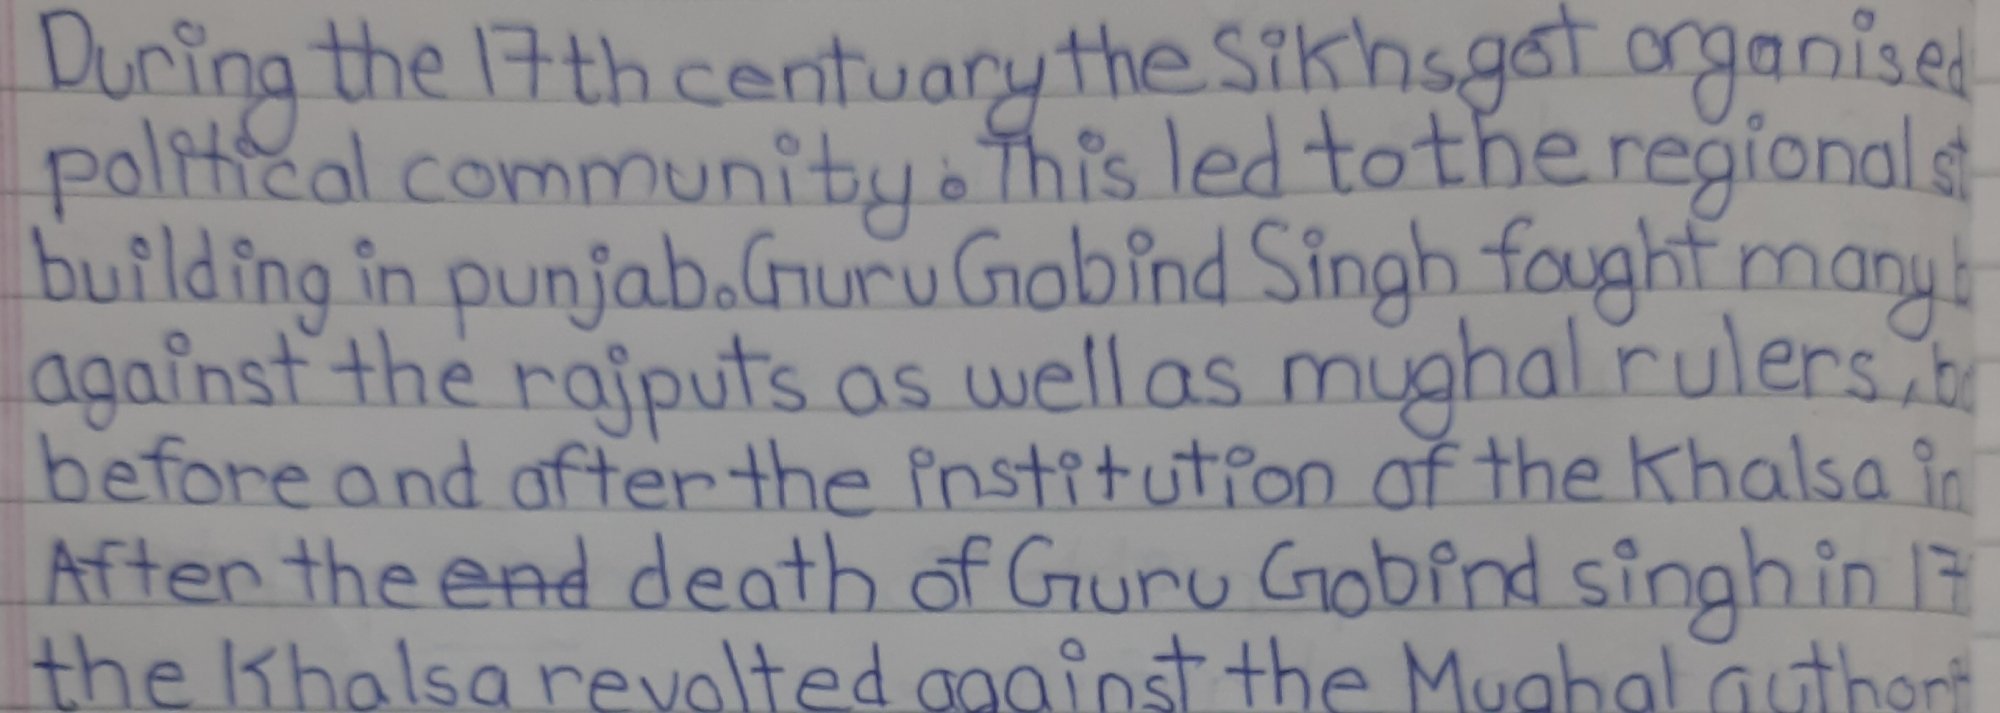 During the 17th centuary the Sikhs got organised
political community. This led to the regional st
building in punjab. Guru Gobind Singh fought many b
against the rajputs as well as mughal rulers, bo
before and after the institution of the Khalsa in
After the end death of Guru Gobind singh in 17
the Khalsa revolted against the Mughal authori